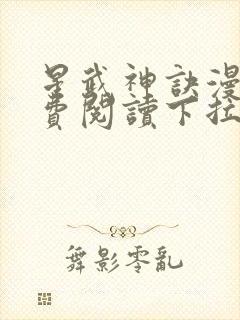 星武神訣漫
費閱讀下拉
舞影零亂